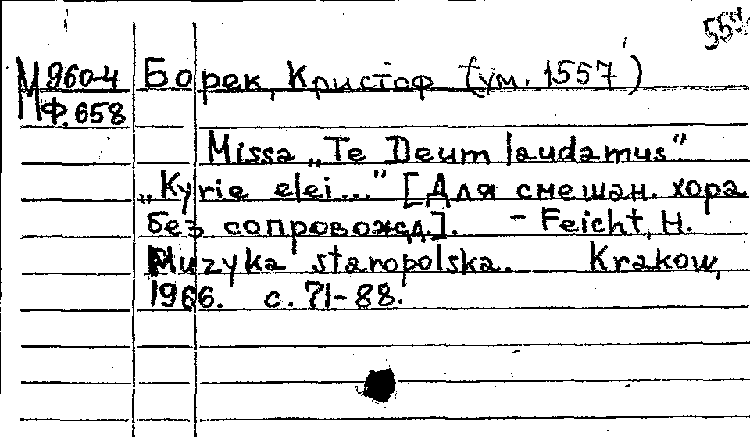 М 960-4 Борек, Кристоф (ум. 1557)
Мф. 658
Missa „Te Deum laudamus"
„Kyrie elei..." [Для смешан. хора
без сопровожд.]. - Feicht, H.
Muzyka staropolska. Krakow,
1966. с. 71-88.